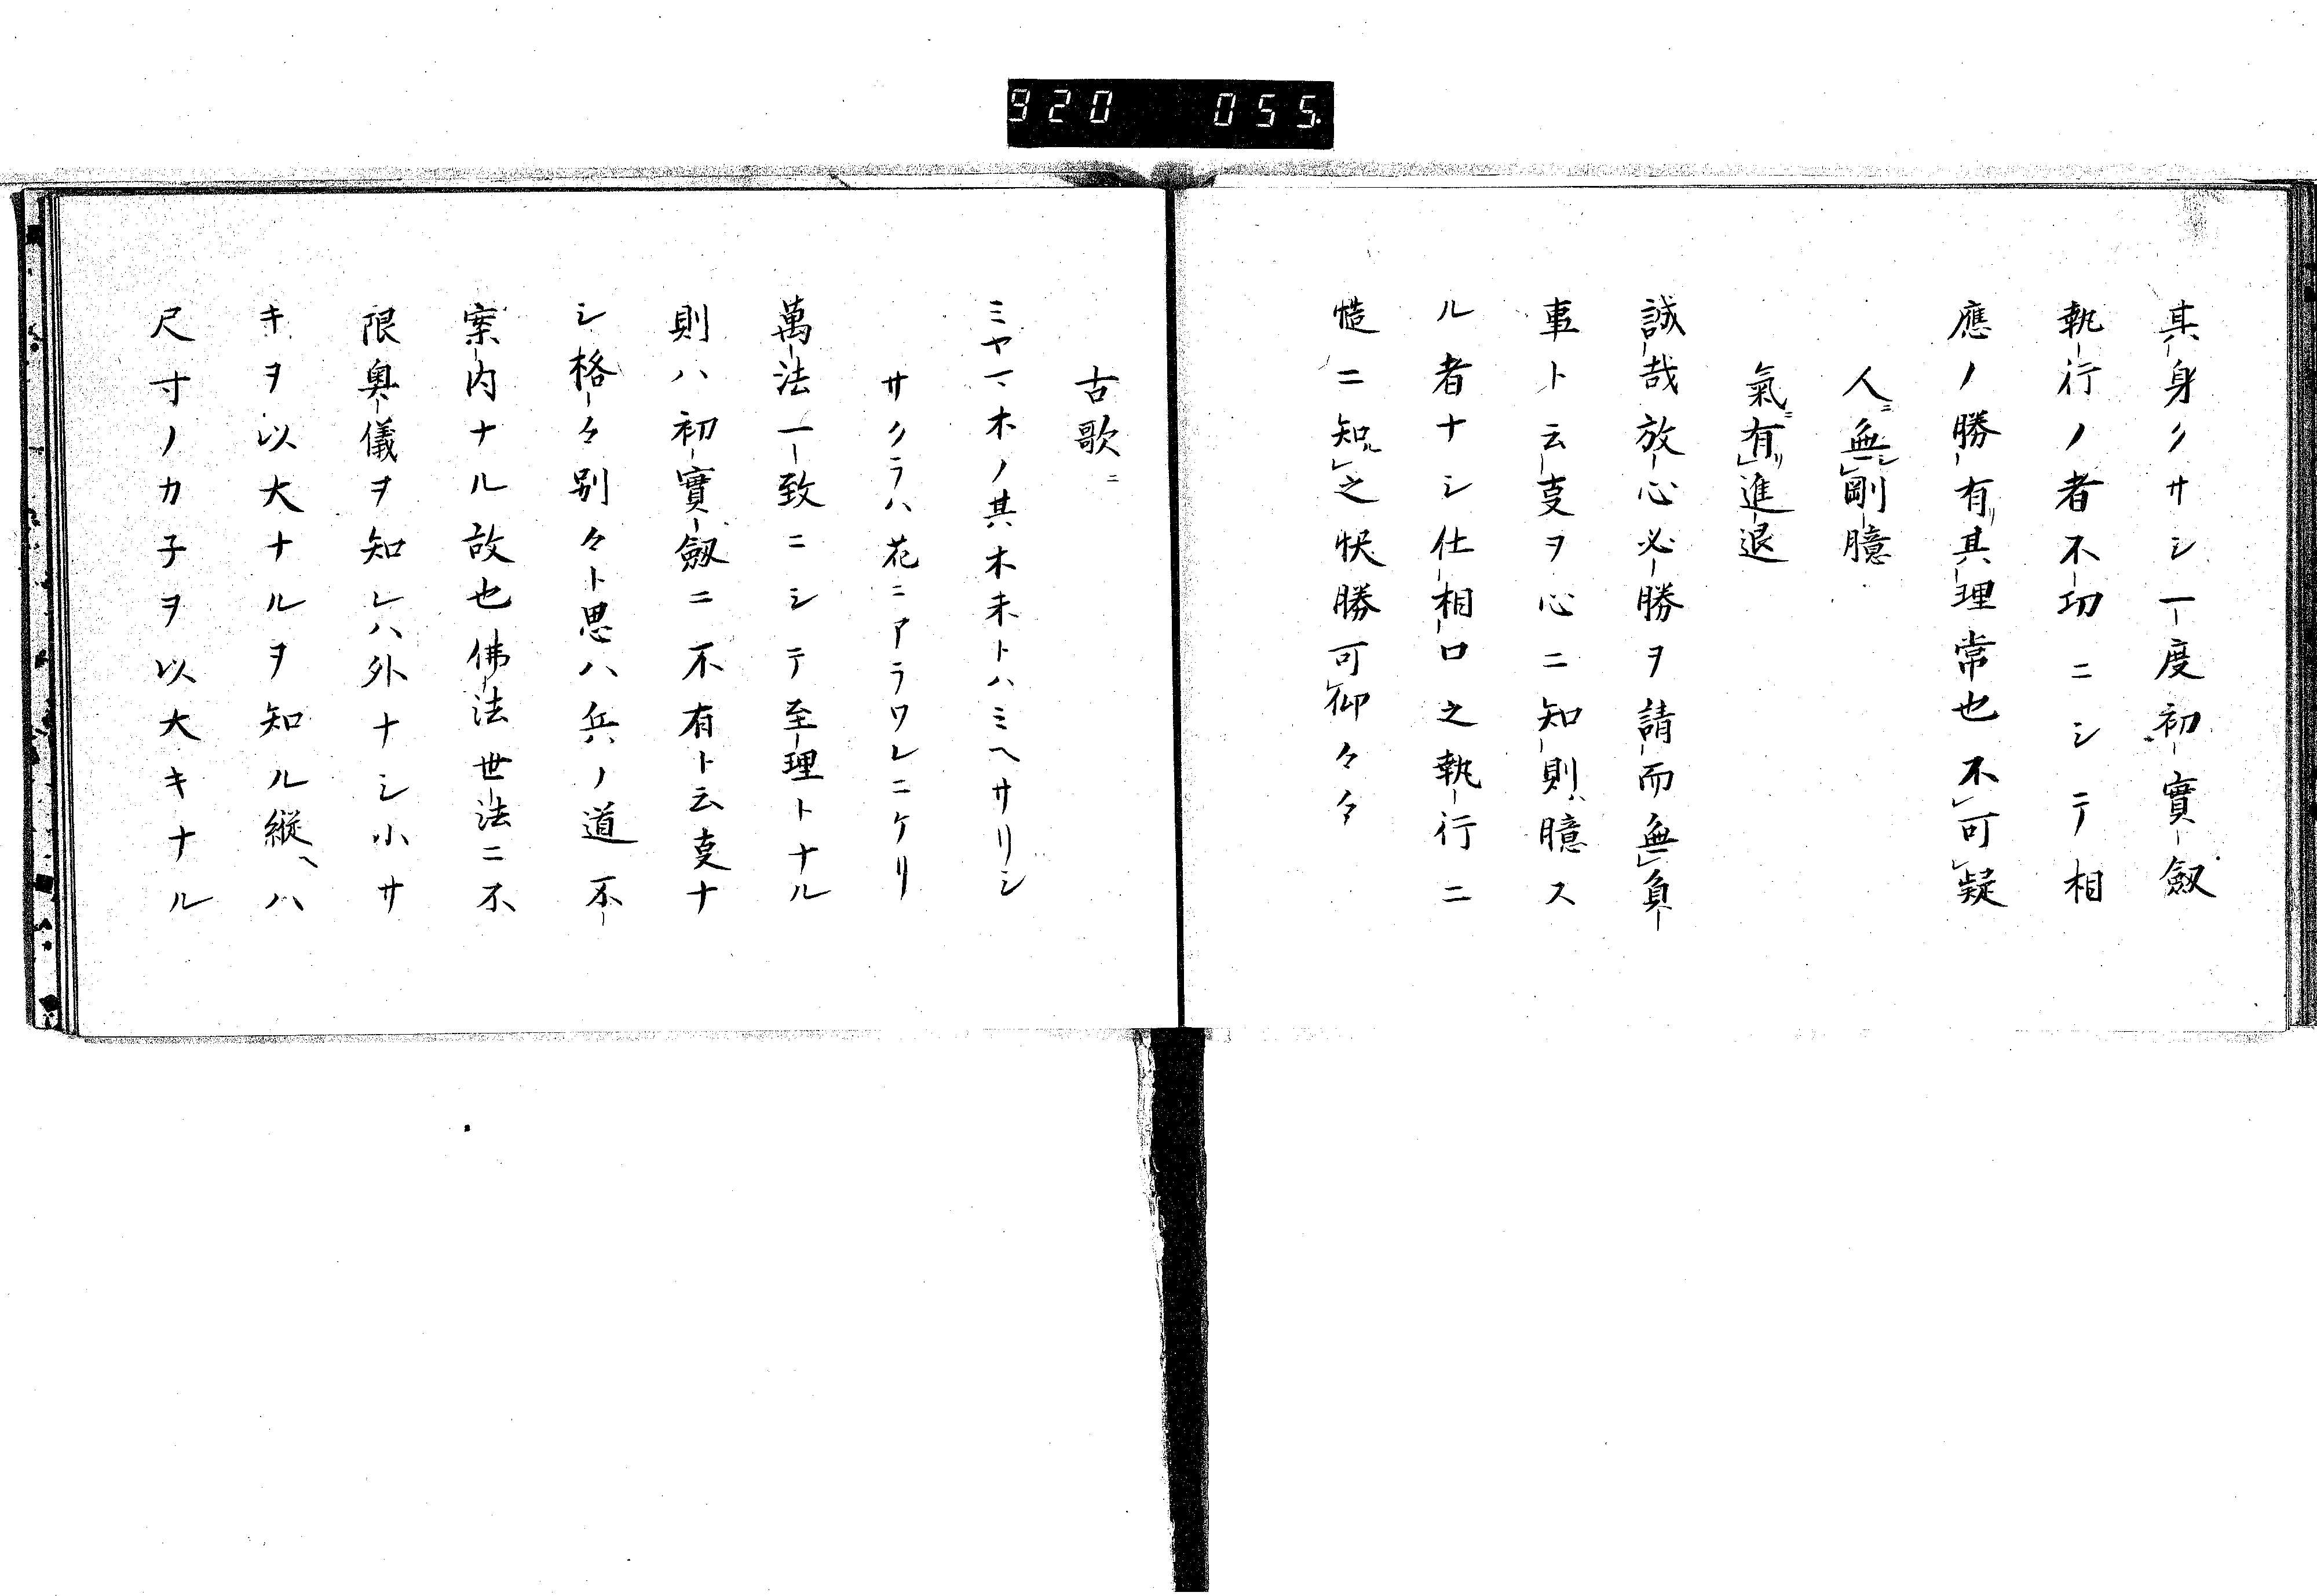 920 055.
其身クサシ一度初實劔
執行ノ者不功ニシテ相
應ノ勝有其理常也不可疑
人ニ無シ剛臆
氣ニ有リ進退
誠哉放心必勝ヲ請而無負
事ト云叓ヲ心ニ知則臆ス
ル者ナシ仕相口之執行ニ
慥ニ知ル之快勝可仰々々
古歌ニ
ミヤマ木ノ其木末トハミヘサリシ
サクラハ花ニアラワレニケリ
萬法一致ニシテ至理トナル
則ハ初實劔ニ不有ト云叓ナ
シ格々別々ト思ハ兵ノ道不
案内ナル故也佛法世法ニ不
限奥儀ヲ知レハ外ナシ小サ
キヲ以大ナルヲ知ル縦ヘハ
尺寸ノカ子ヲ以大キナル